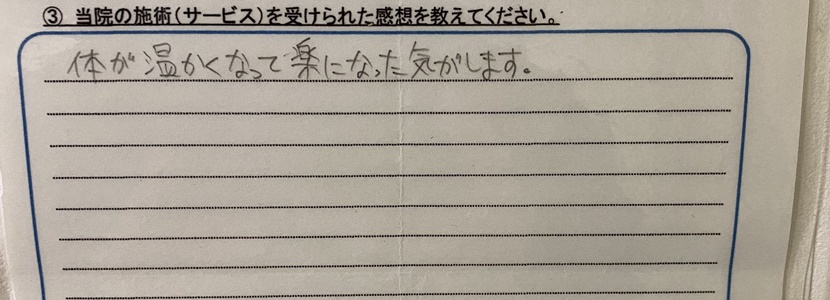 ③ 当院の施術(サービス)を受けられた感想を教えてください。
体が温かくなって楽になった気がします。